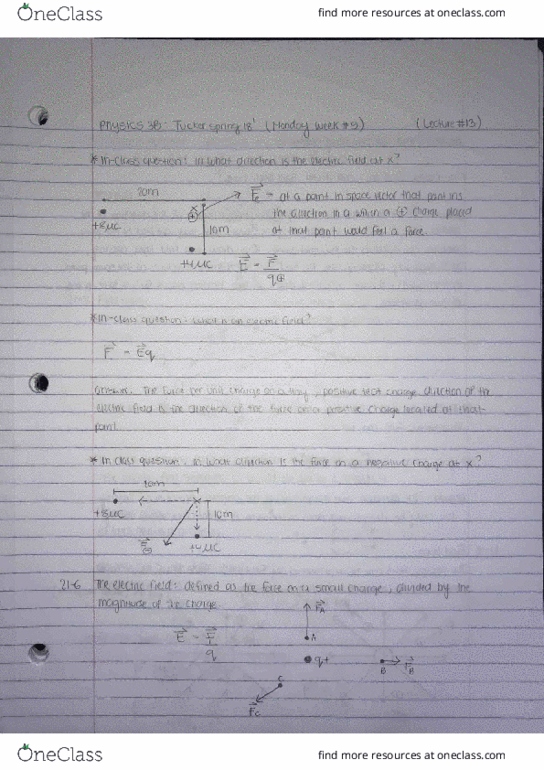 OneClass
find more resources at oneclass.com
Physics 3B: Tucker Spring 18' (Monday week #5) (Lecture #13)
* In-class question: in what direction is the electric field at x?
20m
F = at a point in space vector that points
the direction in a which a (+) charge placed
at that point would feel a force.
x
+
10m
+8μC
+4μC
E = F
q⊕
* In-class question: what is an electric field?
F = Eq
Answer: The force per unit charge on a tiny, positive test charge direction of the
electric field is the direction of the force on a positive charge located at that
point.
* In class question: in what direction is the force on a negative charge at x?
+8μC
x
10m
+4μC
21-6 The electric field: defined as the force on a small charge, divided by the
magnitude of the charge
E = F
q
FA
A
q+
B
FB
C
FC
OneClass
find more resources at oneclass.com